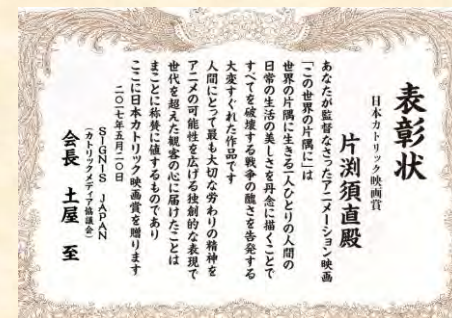 表彰状
日本カトリック映画賞
片渕須直殿
あなたが監督なさったアニメーション映画
「この世界の片隅に」は
世界の片隅に生きる一人ひとりの人間の
日常の生活の美しさを丹念に描くことで
すべてを破壊する戦争の醜さを告発する
大変すぐれた作品です
人間にとって最も大切な労わりの精神を
アニメの可能性を広げる独創的な表現で
世代を超えた観客の心に届けたことは
まことに称賛に値するものであり
ここに日本カトリック映画賞を贈ります
二〇一七年五月二〇日
SIGNIS JAPAN
(カトリックメディア協議会)
会長 土屋 至